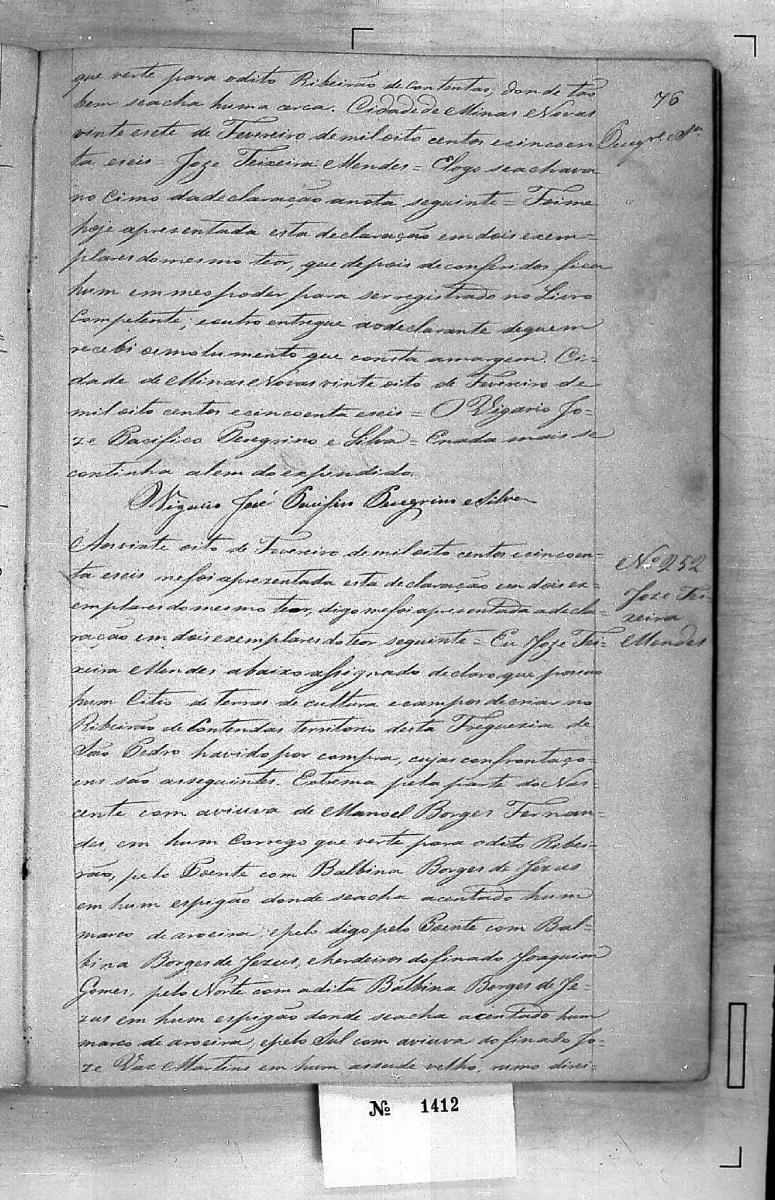 que verte para o dito Ribeirão de Contentas, donde tão
bem se acha huma cerca. Cidade de Minas Novas
vinte e sete de Fevereiro de mil oito centos e cincoen
ta e seis = Joze Teixeira Mendes = E logo se achava
no cimo da declaração a nota seguinte = Foi me
hoje apresentada esta declaração em dois exem=
plares do mesmo teor, que depois de conferidos fica
hum em meo poder para ser registrado no Livro
Competente, e outro entregue ao declarante de quem
recebi o emolumento que consta a margem. Ci=
dade de Minas Novas vinte oito de Fevereiro de
mil oito centos e cincoenta e seis = O Vigario Jo=
ze Pacifico Peregrino e Silva = E nada mais se
continha alem do expendido.
O Vigario José Pacifico Peregrino e Silva
76
Aos vinte oito de Fevereiro de mil oito centos e cincoen=
ta e seis me foi apresentada esta declaração em dois ex=
emplares do mesmo teor, digo me foi apresentada a decla=
ração em dois exemplares do teor seguinte = Eu Joze Tei=
xeira Mendes abaixo assignado declaro que possuo
hum Citio de terras de cultura e campos de criar no
Ribeirão de Contendas territorio desta Freguezia de
São Pedro havido por compra, cujas confrontaço=
ens são as seguintes. Extrema pela parte do Nas
cente com a viuva de Manoel Borges Fernan=
des, em hum Corrego que verte para o dito Ribei=
rão, pelo Poente com Balbina Borges de Jezus
em hum espigão donde se acha acentado hum
marco de aroeira, e pelo digo pelo Poente com Bal=
bina Borges de Jezus, e herdeiros do finado Joaquim
Gomes, pelo Norte com a dita Balbina Borges de Je=
zus em hum espigão donde se acha acentado hum
marco de aroeira, e pelo Sul com a viuva do finado Jo=
ze Vaz Martins em hum assude velho, rumo direi=
No 252
Joze Tei
xeira
Mendes
No 1412